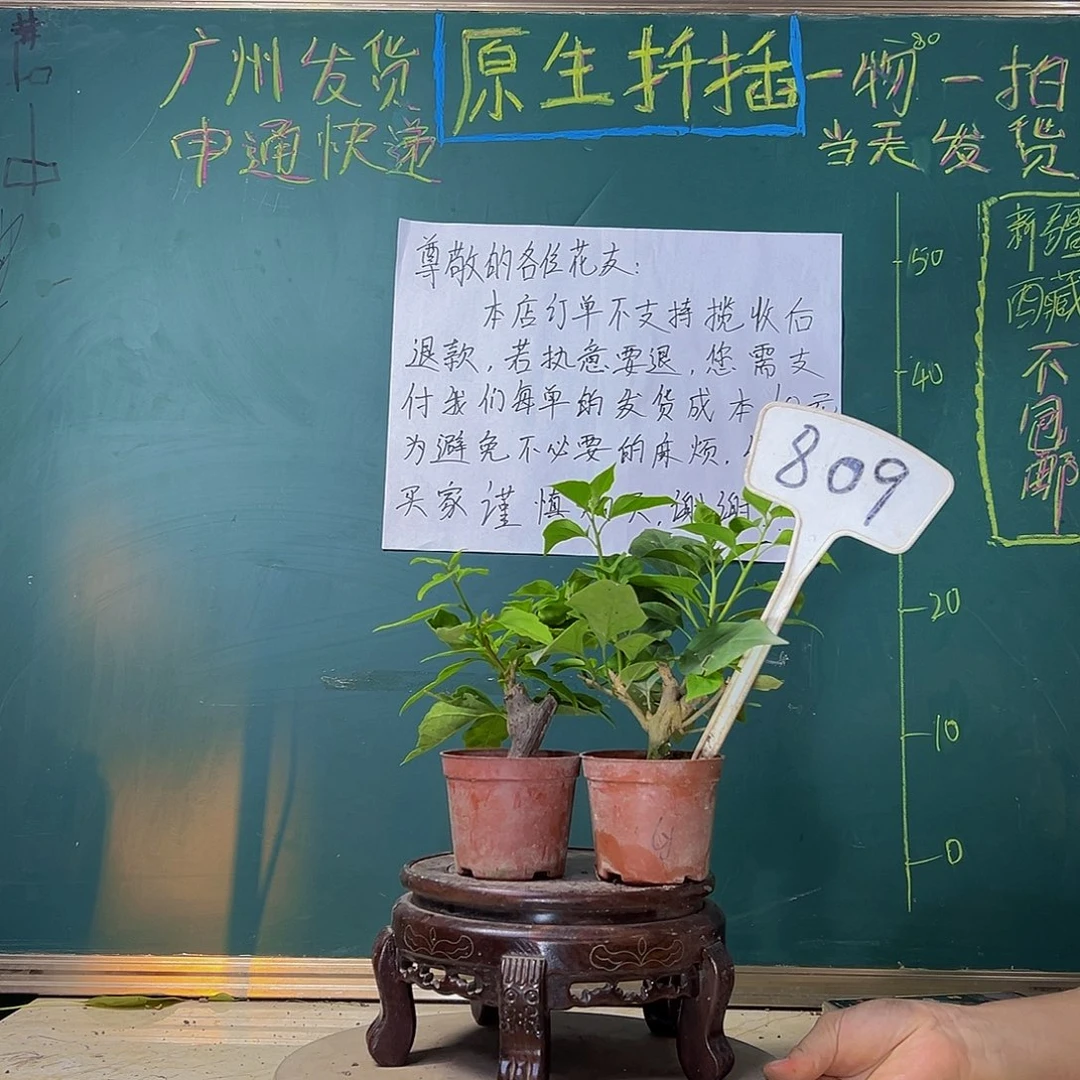 广州发货
申通快递
原生扦插
一物一拍
当天发货
新疆
西藏
不
同
邮
尊敬的各位花友:
本店订单不支持揽收后
退款,若执意要退,您需支
付我们每单的发货成本10元
为避免不必要的麻烦,
买家谨慎 ,谢谢
809
50
40
20
10
0